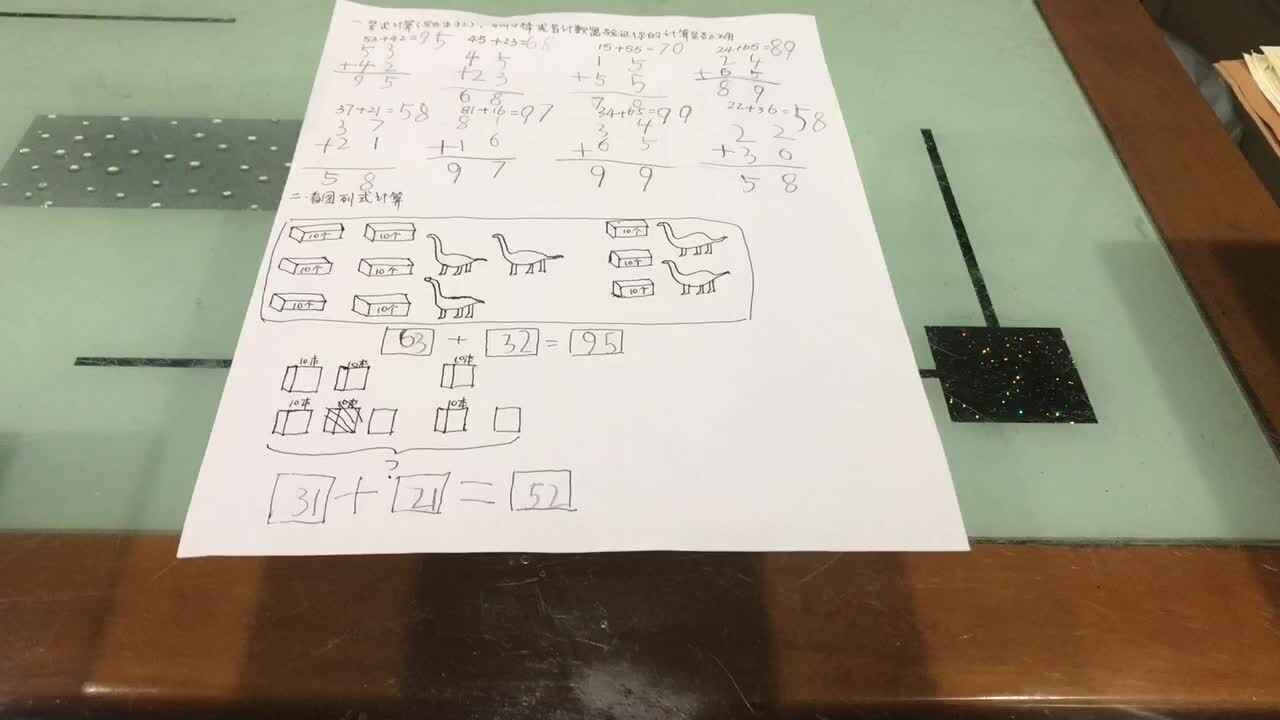 53+42=95 45+23=68 15+55=70 24+65=89
5 3 4 5 1 5 2 4
+4 2 +2 3 +5 5 +6 5
9 5 6 8 7 0 8 9
37+21=58 81+16=97 34+65=99 22+36=58
3 7 8 1 3 4 2 2
+2 1 +1 6 +6 5 +3 6
5 8 9 7 9 9 5 8
二.看图列式计算
10个 10个 10个
10个 10个 10个
10个 10个 10个
63 + 32 = 95
10本 10本 10本
10本 10本 10本
?
31 + 21 = 52